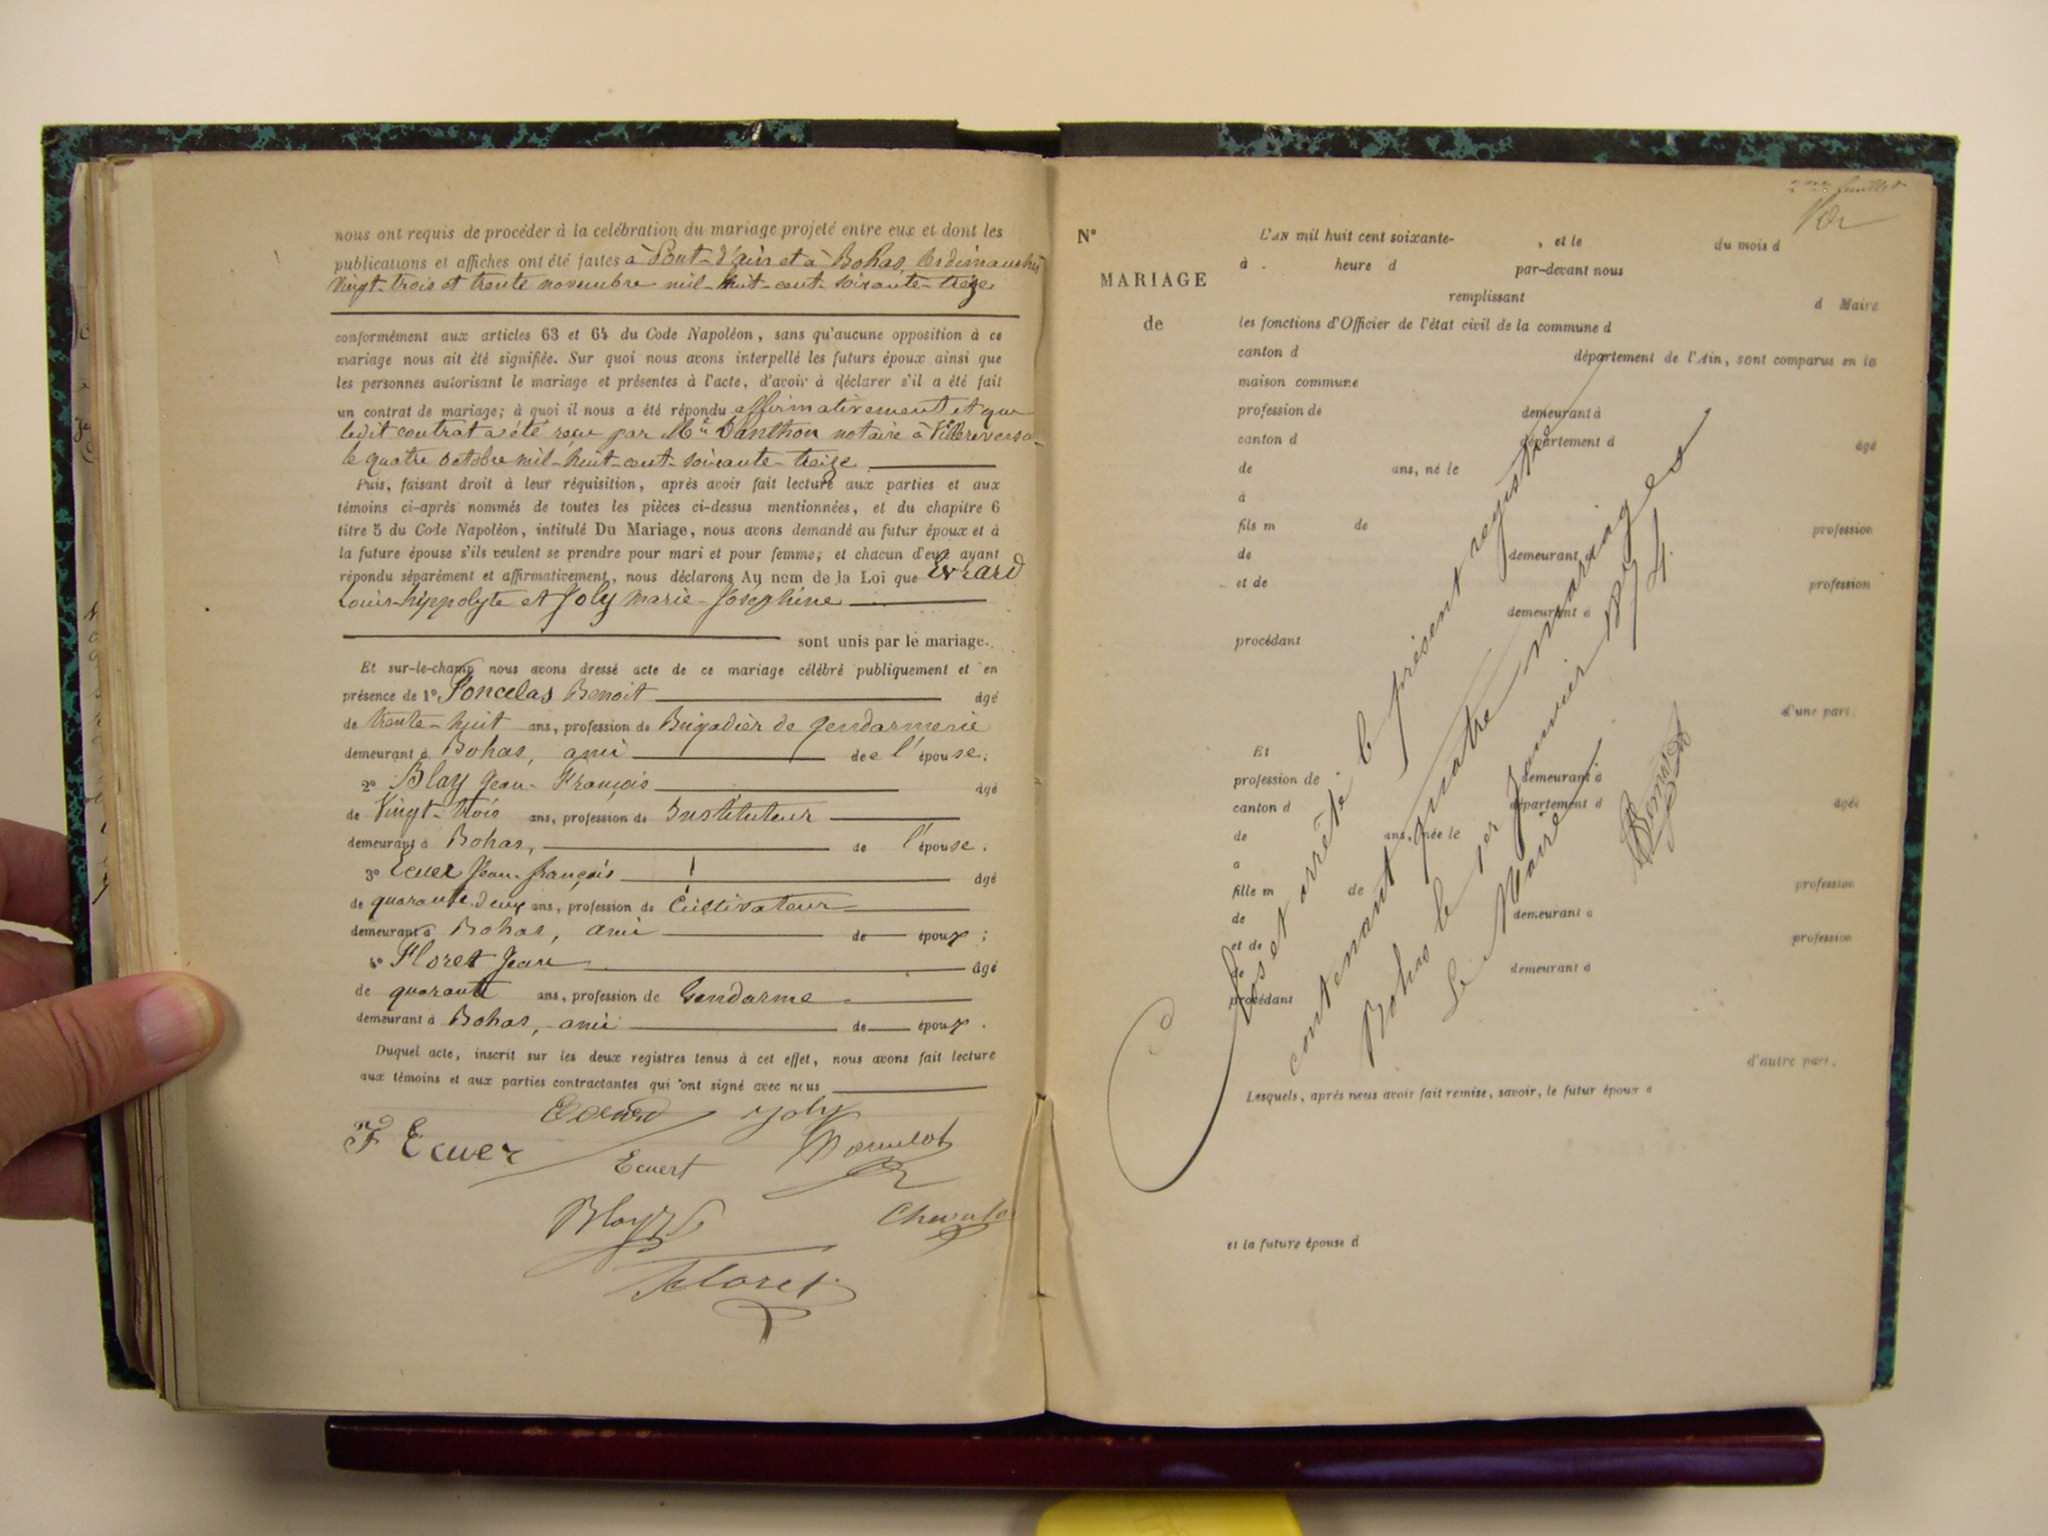 nous ont requis de procéder à la celébration du mariage projeté entre eux et dont les
publications et affiches ont été faites à Pont-d'ain et à Bohas, les dimanches
Vingt-trois et trente novembre mil-huit-cent-soixante-treize
conformément aux articles 63 et 64 du Code Napoléon, sans qu'aucune opposition à ce
mariage nous ait été signifiée. Sur quoi nous avons interpellé les futurs époux ainsi que
les personnes autorisant le mariage et présentes à l'acte, d'avoir à déclarer s'il a été fait
un contrat de mariage; à quoi il nous a été répondu affirmativement et que
ledit contrat a été reçu par Me Danthon notaire à Villereversu-
le quatre octobre mil-huit-cent-soixante-treize
Puis, faisant droit à leur réquisition, après avoir fait lecture aux parties et aux
témoins ci-après nommés de toutes les pièces ci-dessus mentionnées, et du chapitre 6
titre 5 du Code Napoléon, intitulé Du Mariage, nous avons demandé au futur époux et à
la future épouse s'ils veulent se prendre pour mari et pour femme; et chacun d'eux ayant
répondu séparément et affirmativement, nous déclarons Au nom de la Loi que Evrard
Louis-hippolyte et Joly Marie-Joséphine
sont unis par le mariage.
Et sur-le-champ nous avons dressé acte de ce mariage célébré publiquement et en
présence de 1° Poncelas Benoit âgé
de trente-huit ans, profession de Brigadier de gendarmerie
demeurant à Bohas, ami de l'épouse;
2° Blay Jean-François âgé
de Vingt-trois ans, profession de Instituteur
demeurant à Bohas, de l'épouse;
3° Ecuer Jean-françois âgé
de quarante deux ans, profession de Cultivateur
demeurant à Bohas, ami de époux;
4° Floret Jean âgé
de quarante ans, profession de Gendarme
demeurant à Bohas, ami de époux.
Duquel acte, inscrit sur les deux registres tenus à cet effet, nous avons fait lecture
aux témoins et aux parties contractantes qui ont signé avec nous
Joly
F Ecuer
Ecuert
Blay
Floret
2me feuillet
N°
MARIAGE
de
L'AN mil huit cent soixante- , et le du mois d
à heure d par-devant nous
remplissant d Maire
les fonctions d'Officier de l'état civil de la commune d
canton d département de l'Ain, sont comparus en la
maison commune
profession de demeurant à
canton d département d âgé
de ans, né le
à
fils m de profession
de demeurant à
et de profession
demeurant à
procédant
d'une part.
Et
profession de demeurant à
canton d département d âgée
de ans, née le
à
fille m de profession
de demeurant à
et de profession
de demeurant à
procédant
d'autre part.
Lesquels, après nous avoir fait remise, savoir, le futur époux d
et la future épouse d
Clos et arrêté le présent registre
contenant quatre mariages
Bohas le 1er Janvier 1874.
Le Maire